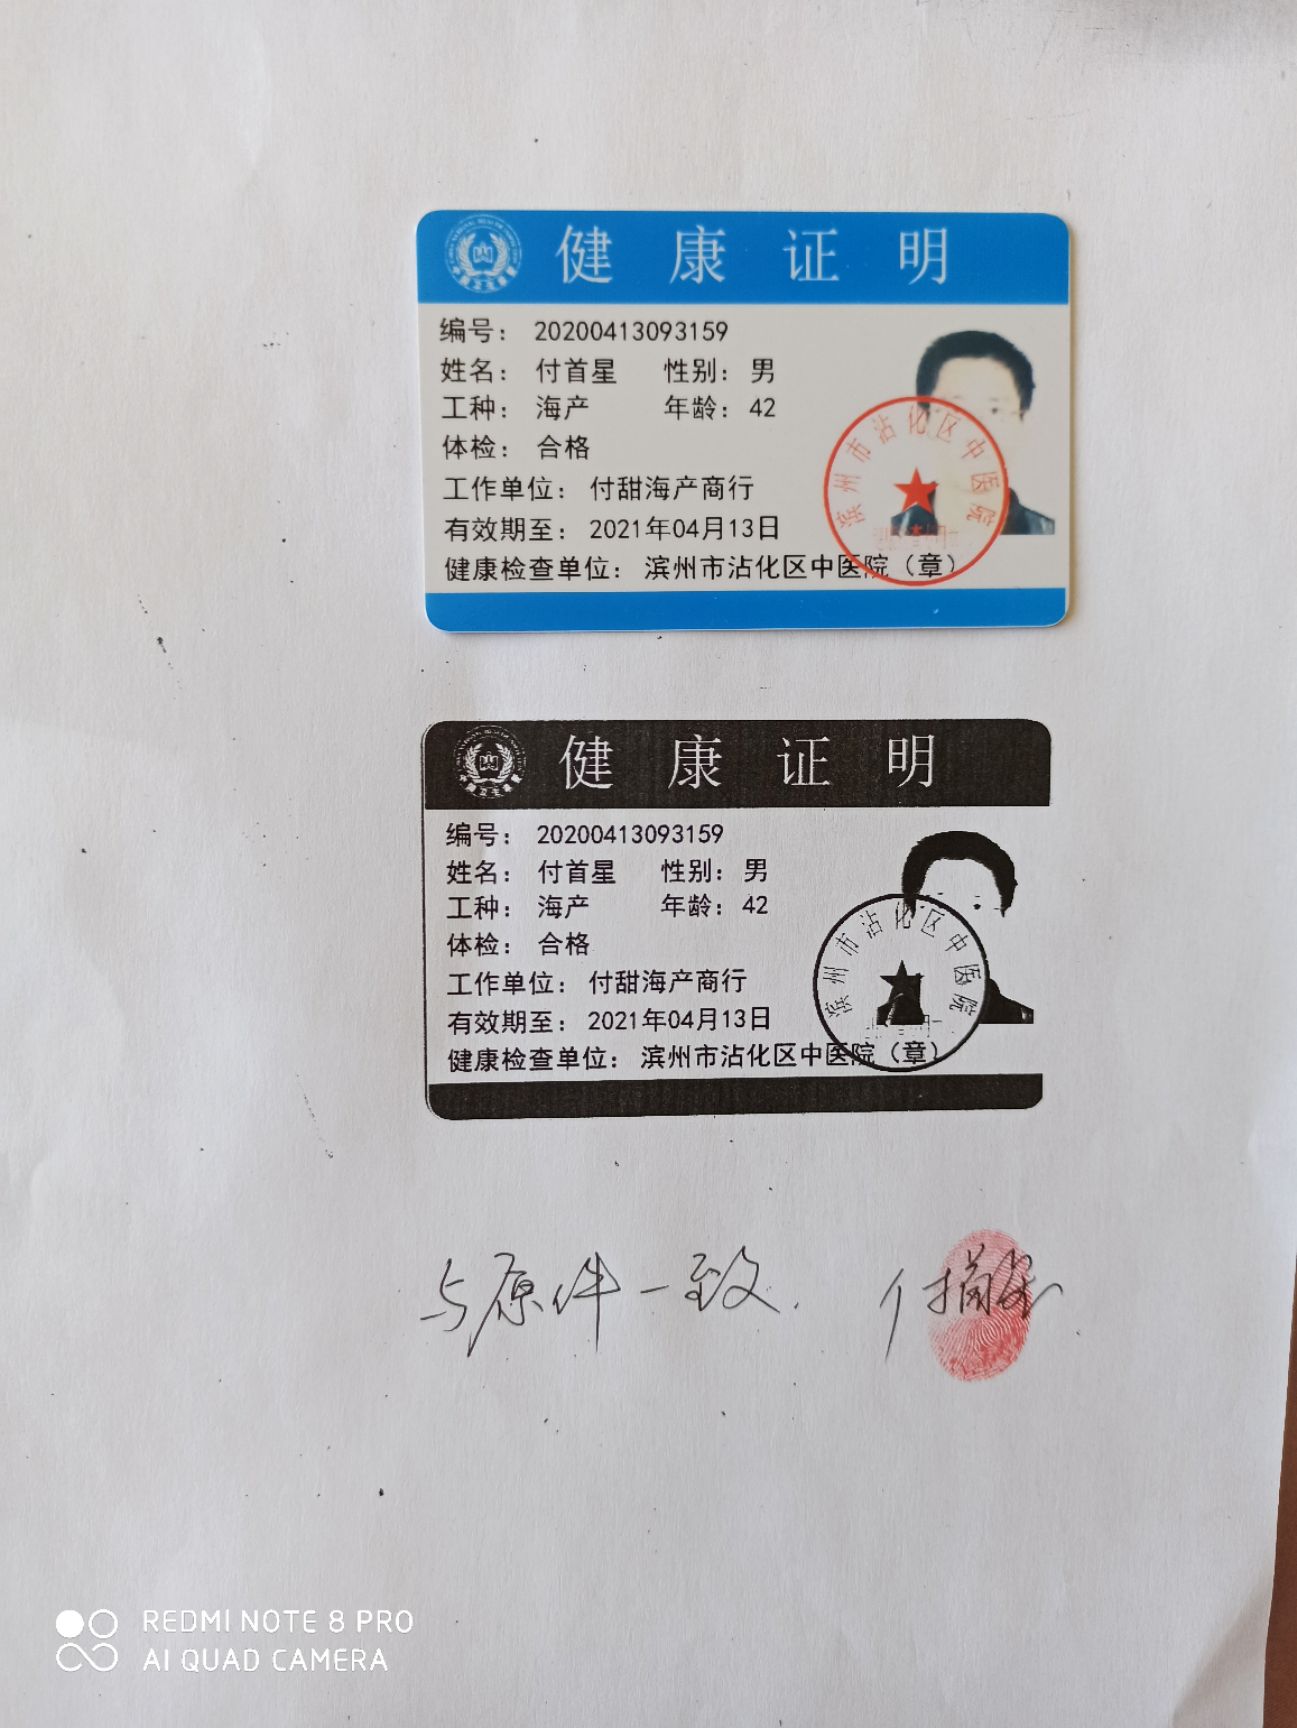 健康证明
编号： 20200413093159
姓名： 付首星 性别： 男
工种： 海产 年龄： 42
体检： 合格
工作单位： 付甜海产商行
有效期至： 2021年04月13日
健康检查单位： 滨州市沾化区中医院（章）
滨州市沾化区中医院
健康证明
编号： 20200413093159
姓名： 付首星 性别： 男
工种： 海产 年龄： 42
体检： 合格
工作单位： 付甜海产商行
有效期至： 2021年04月13日
健康检查单位： 滨州市沾化区中医院（章）
滨州市沾化区中医院
与原件一致.
REDMI NOTE 8 PRO
AI QUAD CAMERA